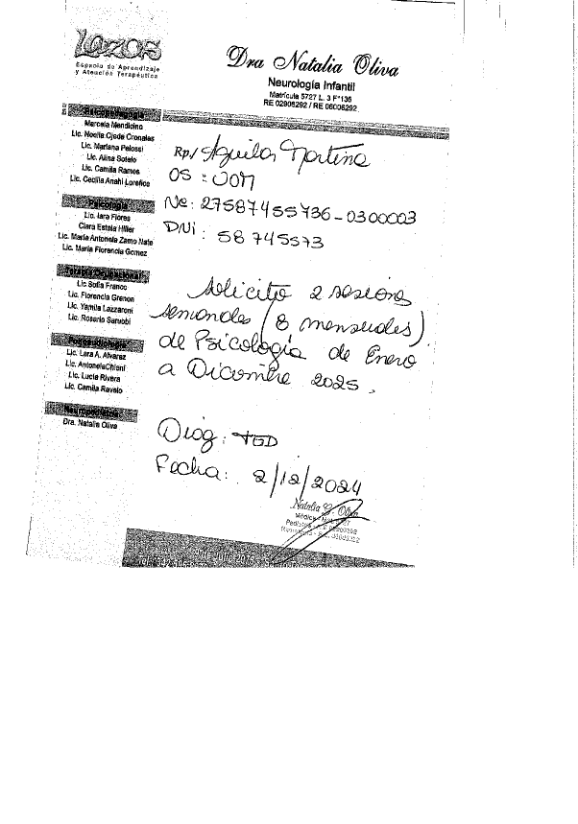 LAZOS
Espacio de Aprendizaje
y Atención Terapéutica
Dra Natalia Oliva
Neurología Infantil
Matrícula 5727 L. 3 F°136
RE 02906292 / RE 06006292
Psicopedagogía
Marcela Mendicino
Lic. Noelia Ojede Cronales
Lic. Mariana Pelossi
Lic. Alina Sotelo
Lic. Camila Ramos
Lic. Cecilia Anahí Lorefice
Psicología
Lic. Iara Flores
Clara Estela Hiller
Lic. María Antonela Zamo Nate
Lic. María Florencia Gomez
Terapia Ocupacional
Lic Sofia Franco
Lic. Florencia Grenon
Lic. Yamila Lazzaroni
Lic. Rosario Sarubbi
Fonoaudiología
Lic. Lara A. Alvarez
Lic. Antonela Chioni
Lic. Lucia Rivera
Lic. Camila Ravelo
Neuropediatría
Dra. Natalia Oliva
Rp/ Aguilar Martina
OS : UOM
No: 27587455736-0300003
DNI : 58 745573
Solicito 2 sesiones
semanales (8 mensuales)
de Psicología de Enero
a Diciembre 2025.
Diag: TGD
Fecha: 2/12/2024
Natalia G. Oliva